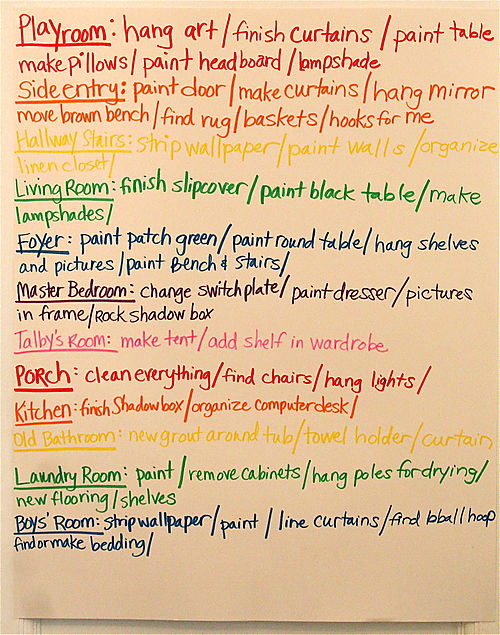 Playroom: hang art/finish curtains/paint table
make pillows/paint headboard/lampshade
Side entry: paint door/make curtains/hang mirror
move brown bench/find rug/baskets/hooks for me
Hallway Stairs: strip wallpaper/paint walls/organize
linen closet/
Living Room: finish slipcover/paint black table/make
lampshades/
Foyer: paint patch green/paint round table/hang shelves
and pictures/paint Bench & Stairs/
Master Bedroom: change switchplate/paint dresser/pictures
in frame/Rock shadow box
Talby's Room: make tent/add shelf in wardrobe
Porch: clean everything/find chairs/hang lights/
Kitchen: finish Shadowbox/organize computer desk/
Old Bathroom: new grout around tub/towel holder/curtain
Laundry Room: paint/remove cabinets/hang poles for drying/
new flooring/shelves
Boys' Room: strip wallpaper/paint/line curtains/find bball hoop
find or make bedding/